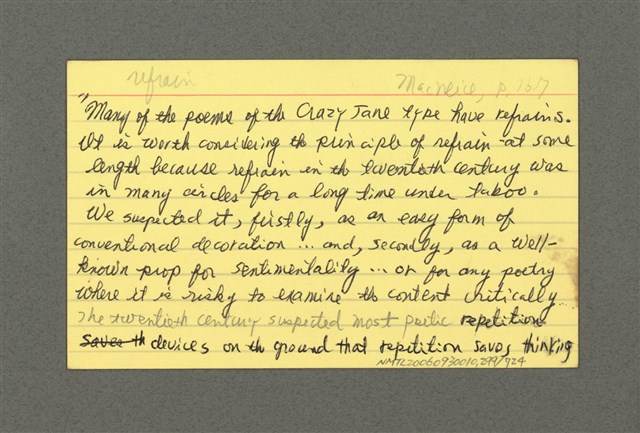 refrain MacNeice, p. 167
"Many of the poems of the Crazy Jane type have refrains.
It is worth considering the principle of refrain at some
length because refrain in the twentieth century was
in many circles for a long time under taboo.
We suspected it, firstly, as an easy form of
conventional decoration ... and, secondly, as a well-
known prop for sentimentality ... or for any poetry
where it is risky to examine the content critically
The twentieth century suspected most poetic repetition
saves th devices on the ground that repetition saves thinking
NMTL20060930010,299/724